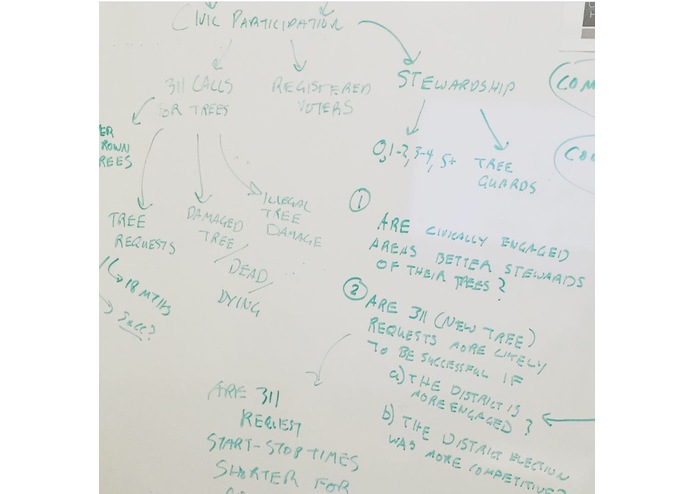 CIVIC PARTICIPATION
311 CALLS
FOR TREES
REGISTERED
VOTERS
STEWARDSHIP
COM
ER
ROWN
REES
0, 1-2, 3-4, 5+
TREE
GUARDS
CO
TREE
REQUESTS
DAMAGED
TREE/
DEAD/
DYING
ILLEGAL
TREE
DAMAGE
18 MTHS
SUCC?
① ARE CIVICALLY ENGAGED
AREAS BETTER STEWARDS
OF THEIR TREES?
② ARE 311 (NEW TREE)
REQUESTS MORE LIKELY
TO BE SUCCESSFUL IF
a) THE DISTRICT IS
MORE ENGAGED?
b) THE DISTRICT ELECTION
WAS MORE COMPETITIVE?
ARE 311
REQUEST
START-STOP TIMES
SHORTER FOR